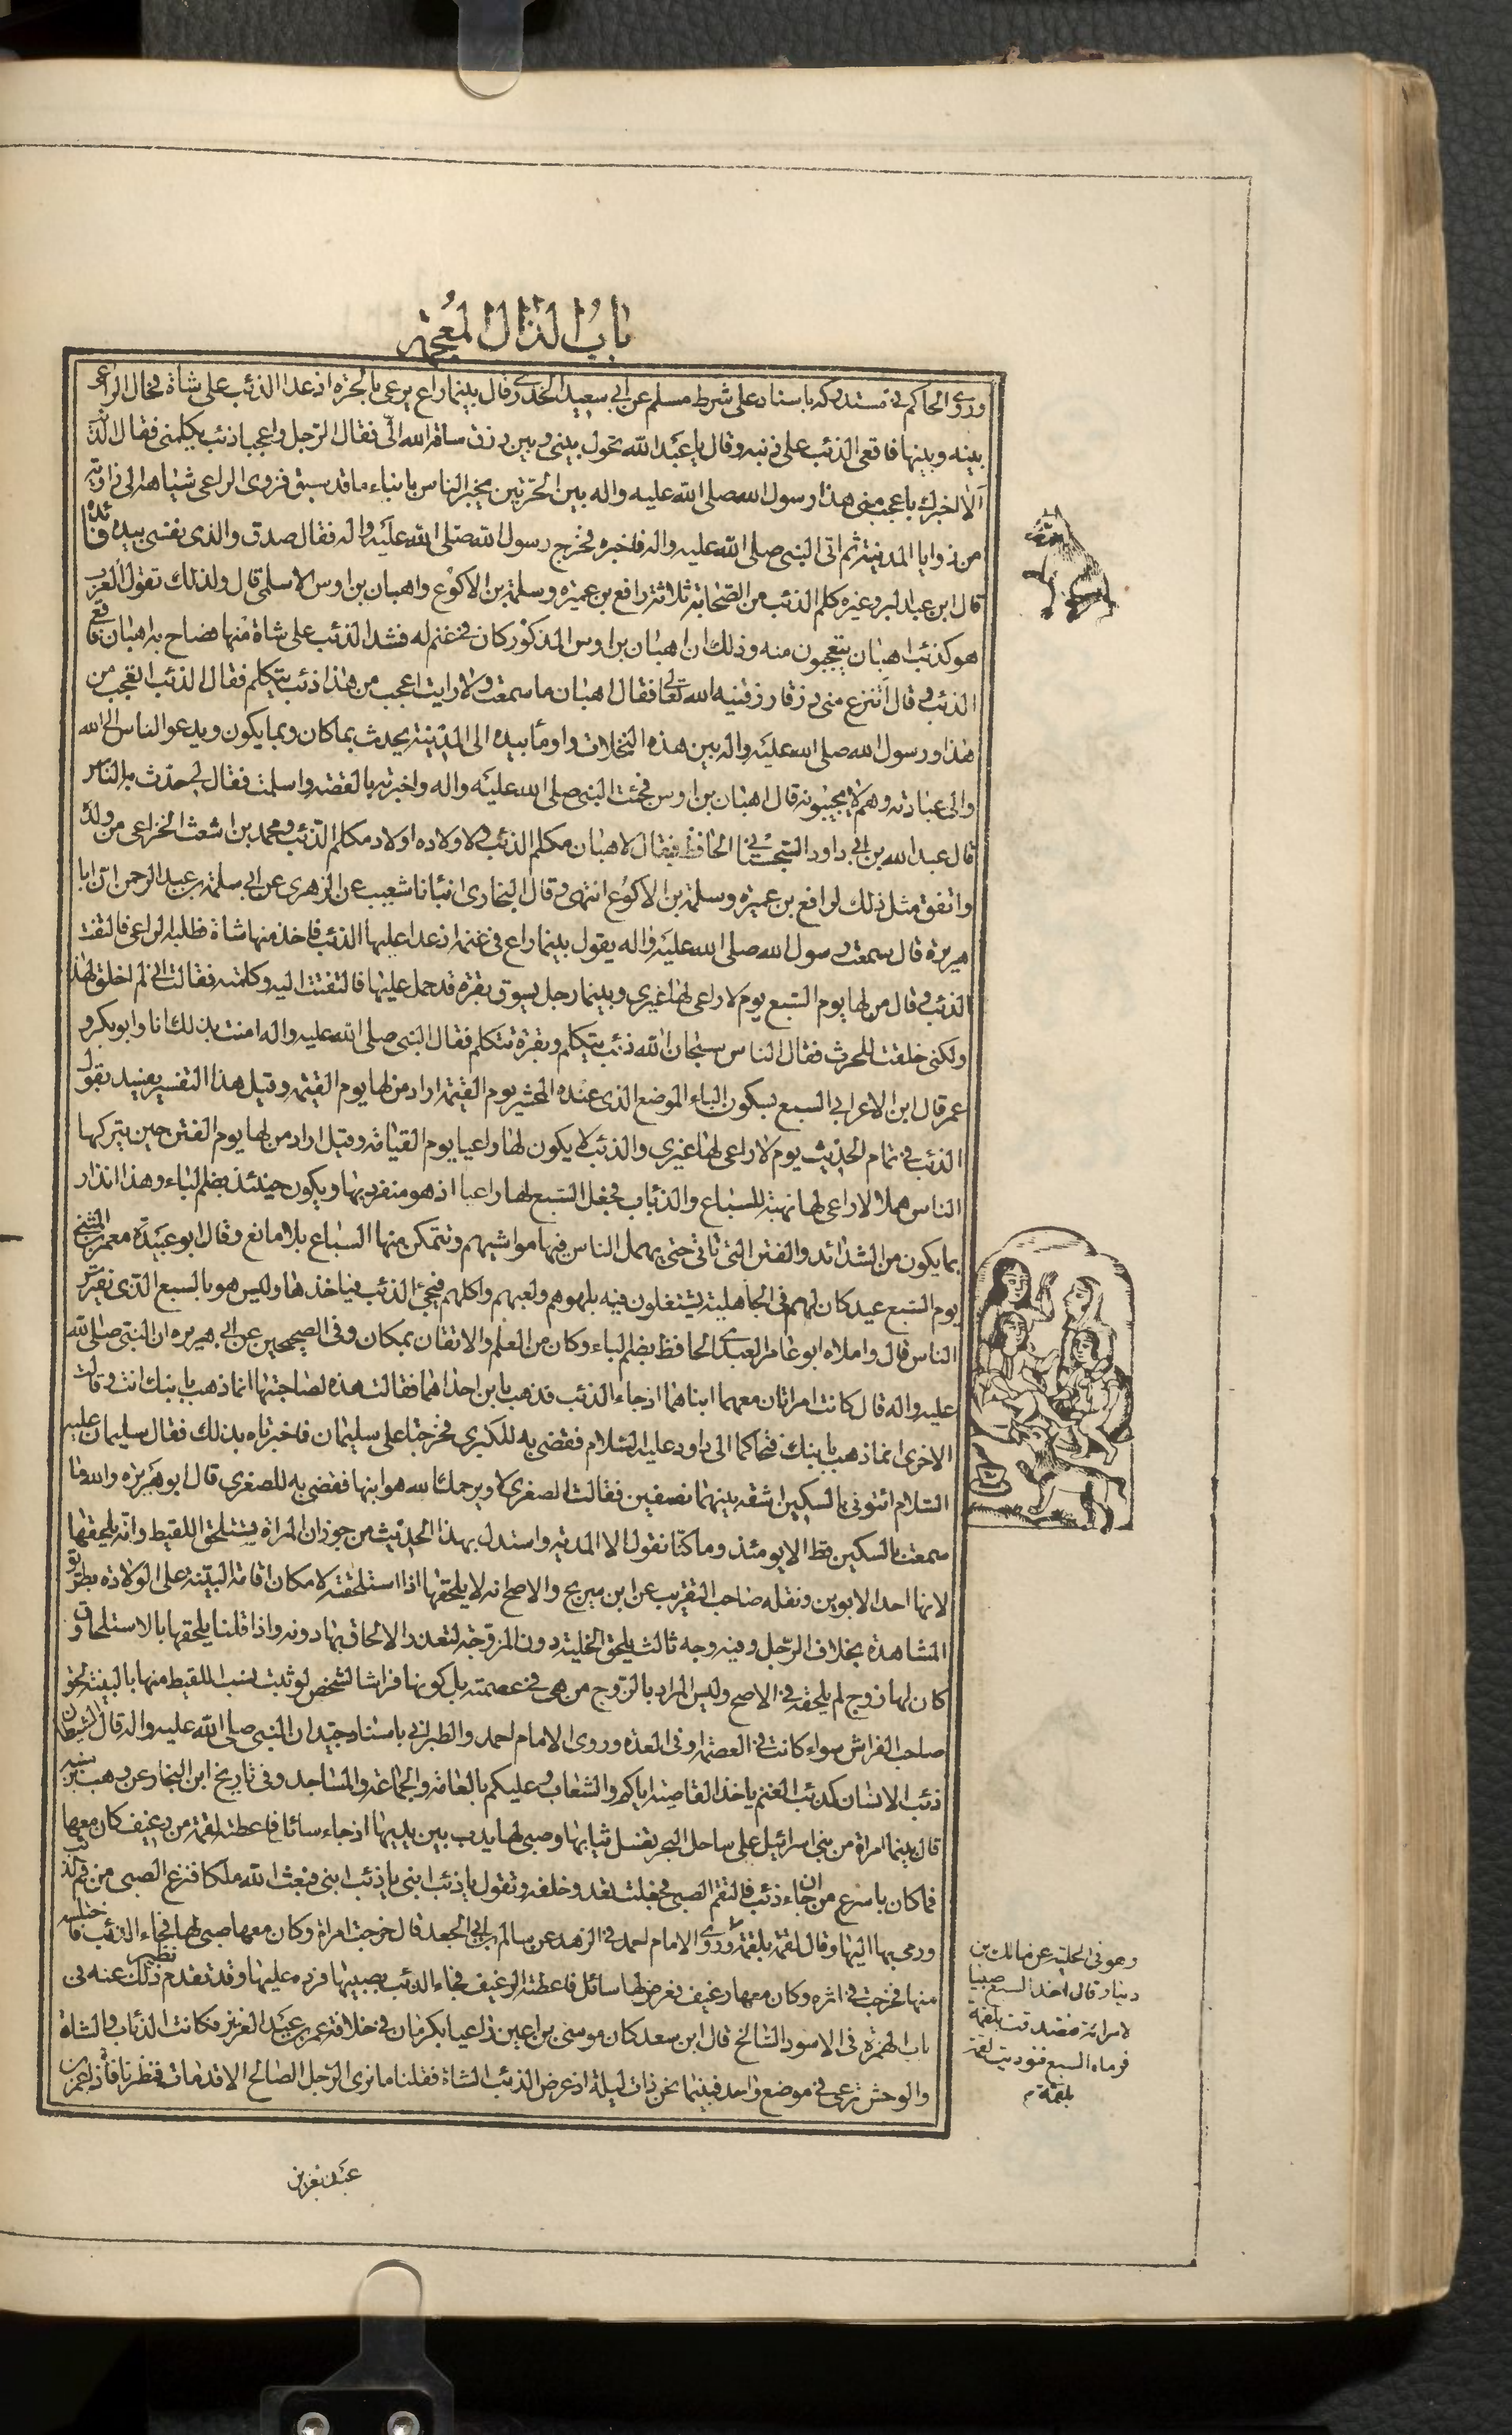 باب الذال المعجمه
وروى الحاكم فى مستدركه باسناد على شرط مسلم عن ابى سعيد الخدرى قال بينما راع يرعى بالحرة اذ عدا الذئب على شاة فحال الراعى
بينه وبينها فاقعى الذئب على ذنبه وقال يا عبد الله تحول بينى وبين رزق ساقه الله الىّ فقال الرجل واعجبا ذئب يكلمنى فقال الذئب
الا اخبرك باعجب منى هذا رسول الله صلى الله عليه واله بين الحرتين يخبر الناس بانباء ما قد سبق فزوى الراعى شياهه الى زاوية
من زوايا المدينة ثم اتى النبى صلى الله عليه واله فاخبره فخرج رسول الله صلى الله عليه واله فقال صدق والذى نفسى بيده فائده
قال ابن عبد البر وغيره كلم الذئب من الصحابة ثلاثة رافع بن عميره وسلمة بن الاكوع واهبان بن اوس الاسلمى قال ولذلك تقول العرب
هو كذئب اهبان يتعجبون منه وذلك ان اهبان بن اوس المذكور كان فى غنم له فشد الذئب على شاة منها فصاح به اهبان فاقعى
الذئب وقال اتنزع منى رزقا رزقنيه الله تعالى فقال اهبان ما سمعت ولا رايت اعجب من هذا ذئب يتكلم فقال الذئب اتعجب من
هذا ورسول الله صلى الله عليه واله بين هذه النخلات واومأ بيده الى المدينة يحدث بما كان وبما يكون ويدعو الناس الى الله
والى عبادته وهم لا يجيبونه قال اهبان بن اوس فجئت النبى صلى الله عليه واله واخبرته بالقصة واسلمت فقال لى حدث به الناس
قال عبد الله بن ابى داود السجستانى الحافظ فيقال لاهبان مكلم الذئب ولاولاده اولاد مكلم الذئب ومحمد بن اشعث الخزاعى من ولده
واتفق مثل ذلك لرافع بن عميره وسلمة بن الاكوع انتهى وقال البخارى انبانا شعيب عن الزهرى عن ابى سلمة بن عبد الرحمن ان ابا
هريرة قال سمعت رسول الله صلى الله عليه واله يقول بينما راع فى غنمه اذ عدا عليها الذئب فاخذ منها شاة فطلبه الراعى فالتفت
الذئب وقال من لها يوم السبع يوم لا راعى لها غيرى وبينما رجل يسوق بقرة قد حمل عليها فالتفتت اليه وكلمته فقالت انى لم اخلق لهذا
ولكنى خلقت للحرث فقال الناس سبحان الله ذئب يتكلم وبقرة تتكلم فقال النبى صلى الله عليه واله امنت بذلك انا وابوبكر و
عمر قال ابن الاعرابى السبع بسكون الباء الموضع الذى عنده المحشر يوم القيمة اراد من لها يوم القيمة وقيل هذا التفسير يفسد بقول
الذئب فى تمام الحديث يوم لا راعى لها غيرى والذئب لا يكون لها راعيا يوم القيامة وقيل اراد من لها يوم الفتن حين يتركها
الناس هملا لا راعى لها نهبة للسباع والذئاب فجعل السبع لها راعيا اذ هو منفرد بها ويكون حينئذ بضم الباء وهذا انذار
بما يكون من الشدائد والفتن التى تاتى حتى يهمل الناس فيها مواشيهم وتتمكن منها السباع بلا مانع وقال ابو عبيدة معمر بن المثنى
يوم السبع عيد كان لهم فى الجاهلية يشتغلون فيه بلهوهم ولعبهم واكلهم فيجئ الذئب فياخذها وليس هو بالسبع الذى يفترس
الناس قال واملاه ابو عامر العبدى الحافظ بضم الباء وكان من العلم والاتقان بمكان وفى الصحيحين عن ابى هريره ان النبى صلى الله
عليه واله قال كانت امراتان معهما ابناهما اذ جاء الذئب فذهب بابن احداهما فقالت هذه لصاحبتها انما ذهب بابنك انت وقالت
الاخرى انما ذهب بابنك فتحاكما الى داود عليه السلام فقضى به للكبرى فخرجتا على سليمان فاخبرتاه بذلك فقال سليمان عليه
السلام ائتونى بالسكين اشقه بينهما نصفين فقالت الصغرى لا ويرحمك الله هو ابنها فقضى به للصغرى قال ابو هريره والله ما
سمعت بالسكين قط الا يومئذ وما كنا نقول الا المدية واستدل بهذا الحديث من جوز ان المراة يستلحق اللقيط وانه يلحقها
لانها احد الابوين ونقله صاحب التقريب عن ابن سريج والاصح انه لا يلحقها اذا استلحقته لامكان اقامة البينة على الولادة بطريق
المشاهدة بخلاف الرجل وفيه وجه ثالث يلحق الخلية دون المزوجة لتعذر الالحاق بها دونه واذا قلنا يلحقها بالاستلحاق و
كان لها زوج لم يلحقه فى الاصح وليس المراد بالزوج من هى فى عصمته بل كونها فراشا لشخص لو ثبت نسب اللقيط منها بالبينة لحق
صاحب الفراش سواء كانت فى العصمة او فى العدة وروى الامام احمد والطبرانى باسناد جيد ان النبى صلى الله عليه واله قال الشيطان
ذئب الانسان كذئب الغنم ياخذ القاصية اياكم والشعاب وعليكم بالعامة والجماعة والمساجد وفى تاريخ ابن النجار عن وهب بن منبه
قال بينما امراة من بنى اسرائيل على ساحل البحر تغسل ثيابها وصبى لها يدب بين يديها اذ جاء سائل فاعطته لقمة من رغيف كان معها
فما كان باسرع من ان جاء ذئب فالتقم الصبى فجعلت تعدو خلفه وتقول يا ذئب ابنى يا ذئب ابنى فبعث الله ملكا فنزع الصبى من فم الذئب
ورمى بها اليها وقال لقمة بلقمة وروى الامام احمد فى الزهد عن سالم بن ابى الجعد قال خرجت امراة وكان معها صبى لها فجاء الذئب فاختلسه
منها فخرجت فى اثره وكان معها رغيف فعرض لها سائل فاعطته الرغيف فجاء الذئب بصبيها فرده عليها وقد تقدم نظير ذلك عنه فى
باب الهمزة فى الاسود السالخ قال ابن سعد كان موسى بن اعين راعيا بكرمان فى خلافة عمر بن عبد العزيز فكانت الذئاب والشاة
والوحش ترعى فى موضع واحد فبينما نحن ذات ليلة اذ عرض الذئب الشاة فقلنا ما نرى الرجل الصالح الا قد مات فنظرنا فاذا عمر بن
وهو فى الحلية عن مالك بن
دينار قال اخذ السبع صبيا
لامراة فتصدقت بلقمة
فرماه السبع فنوديت لقمة
بلقمة م
عبد العزيز